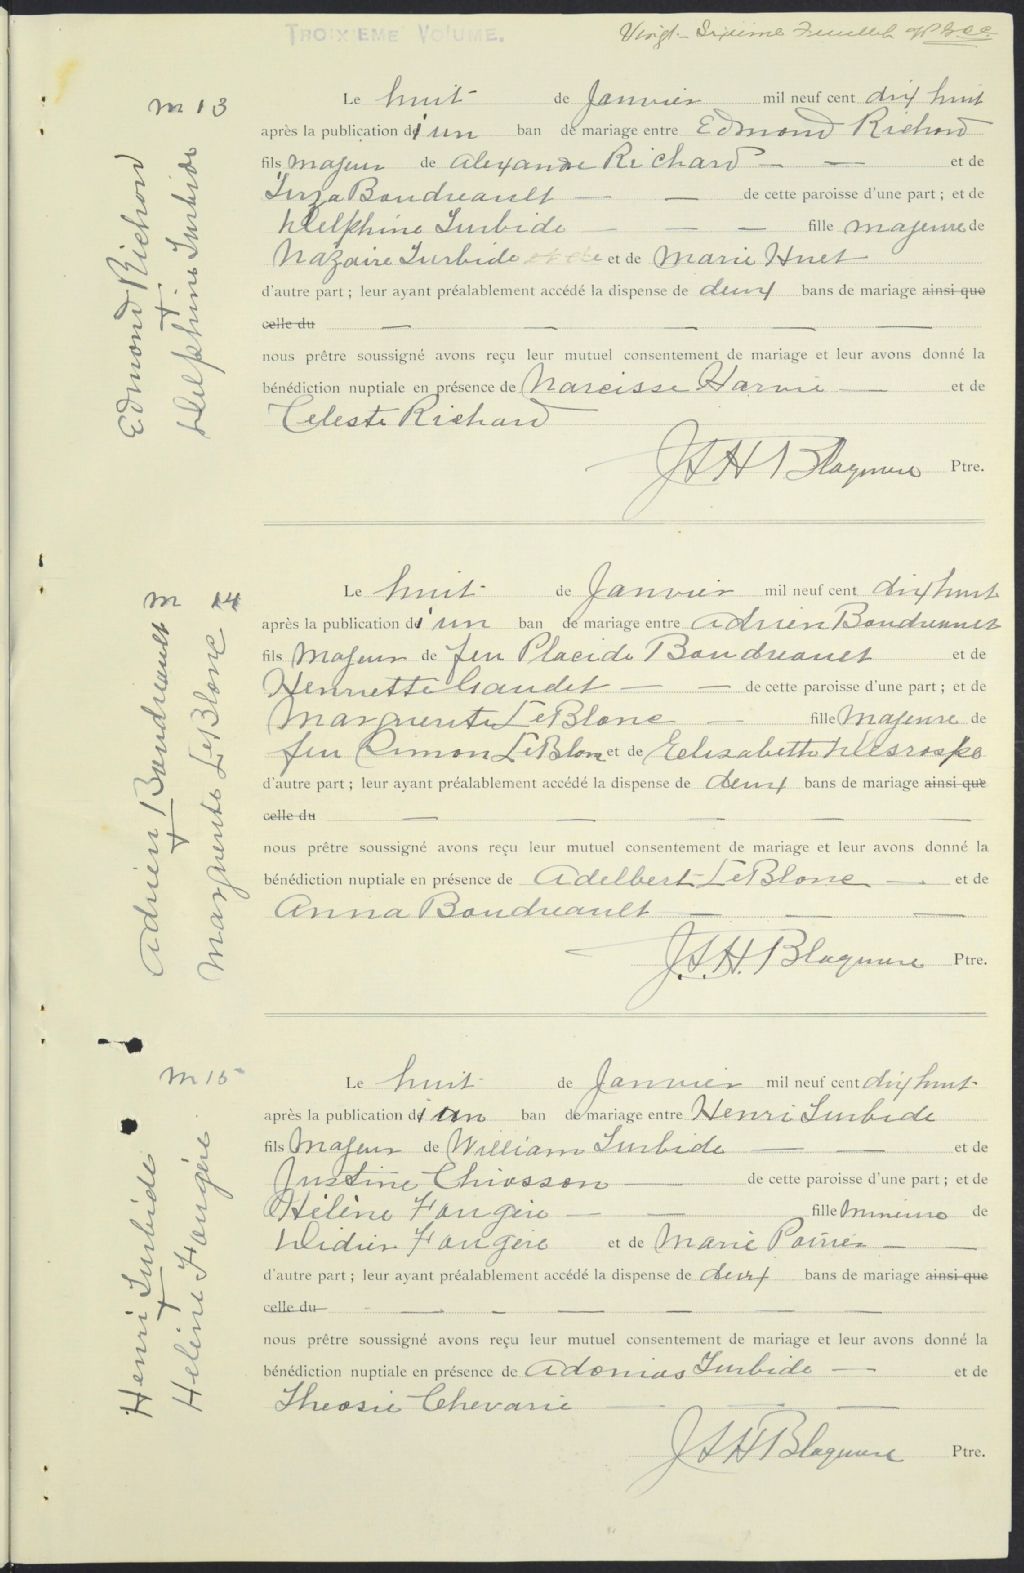 TROIXIEME VOLUME.
Vingt-Sixième Feuillet
M 13
Edmond Richard
+
Delphine Turbide
Le huit de Janvier mil neuf cent dix huit
après la publication d'un ban de mariage entre Edmond Richard
fils Majeur de Alexandre Richard — — et de
Boudreault — — de cette paroisse d'une part ; et de
Delphine Turbide — — — fille majeure de
Nazaire Turbide et de Marie Huet
d'autre part ; leur ayant préalablement accédé la dispense de deux bans de mariage ainsi que
celle du — — — — —
nous prêtre soussigné avons reçu leur mutuel consentement de mariage et leur avons donné la
bénédiction nuptiale en présence de Narcisse Harvie — et de
Celeste Richard
J S H Blaquiere Ptre.
M 14
Adrien Boudreault
+
Marguerite LeBlanc
Le huit de Janvier mil neuf cent dix huit
après la publication d'un ban de mariage entre Adrien Boudreault
fils Majeur de feu Placide Boudreault et de
Henriette Gaudet — — de cette paroisse d'une part ; et de
Marguerite LeBlanc — fille Majeure de
feu Simon LeBlanc et de Elisabeth
d'autre part ; leur ayant préalablement accédé la dispense de deux bans de mariage ainsi que
celle du — — — — —
nous prêtre soussigné avons reçu leur mutuel consentement de mariage et leur avons donné la
bénédiction nuptiale en présence de Adelbert LeBlanc — et de
Anna Boudreault — — —
J.S.H. Blaquiere Ptre.
M 15
Henri Turbide
+
Helène Fougère
Le huit de Janvier mil neuf cent dix huit
après la publication d'un ban de mariage entre Henri Turbide
fils Majeur de William Turbide — — et de
Justine Chiasson — de cette paroisse d'une part ; et de
Hélène Fougère — — fille Mineure de
Didier Fougère et de Marie Poirier — —
d'autre part ; leur ayant préalablement accédé la dispense de deux bans de mariage ainsi que
celle du — — — — — — —
nous prêtre soussigné avons reçu leur mutuel consentement de mariage et leur avons donné la
bénédiction nuptiale en présence de Adonias Turbide — et de
Théosie Chevarie — — —
J S H Blaquiere Ptre.